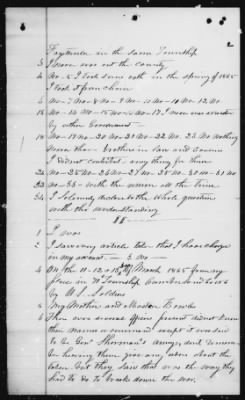 2
Fayetteville in the same Township
3 I never was out the county
4 No - 5 I took some oath in the spring of 1865
I took it from them
6 No - 7 No - 8 No - 9 No - 10 No - 12 No
13 No - 14 No - 15 No - 16 No - 17 I never was arrested
by either Government
18 No - 19 No - 20 No - 21 No - 22 No. 23 No nothing
more than brothers in law and cousins
I did not contribute any thing for them
24 No - 25 No - 26 No - 27 No - 28 No - 30 No - 31 No
32 No - 33 - with the union all the time
34 I Solemnly declare to the whole question
with the understanding
1 I was
2 I saw every article taken that I have charge
in my account - 3 No
4 On the 11 - 12 & 13 March 1865 from my
place in Township Cumberland Co NC
by U.S. Soldiers
5 My Mother and
6 There was several officers present did not know
their names or command except it was said
to be Gen' Sherman's army,
hearing them give any orders about the
taken but they said that was the way they
had to do to break down the war.